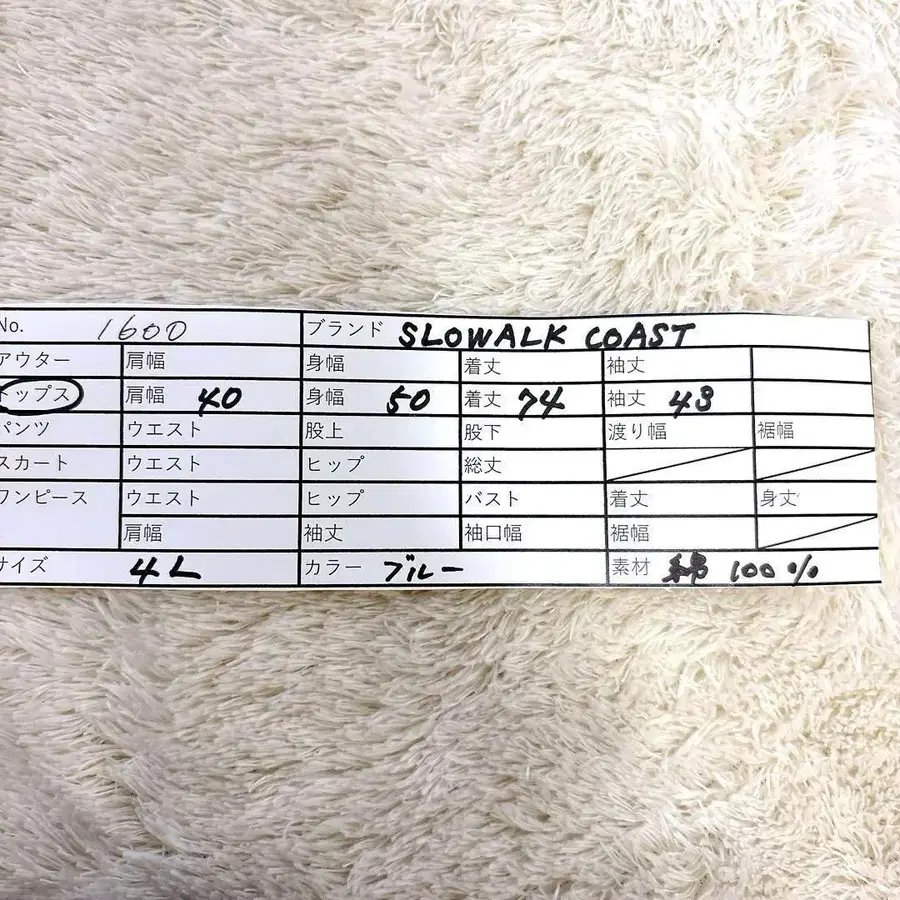 No. 1600 ブランド SLOWALK COAST
アウター 肩幅 身幅 着丈 袖丈
トップス 肩幅 40 身幅 50 着丈 74 袖丈 43
パンツ ウエスト 股上 股下 渡り幅 裾幅
スカート ウエスト ヒップ 総丈
ワンピース ウエスト ヒップ バスト 着丈 身丈
肩幅 袖丈 袖口幅 裾幅
サイズ 4L カラー ブルー 素材 綿 100%